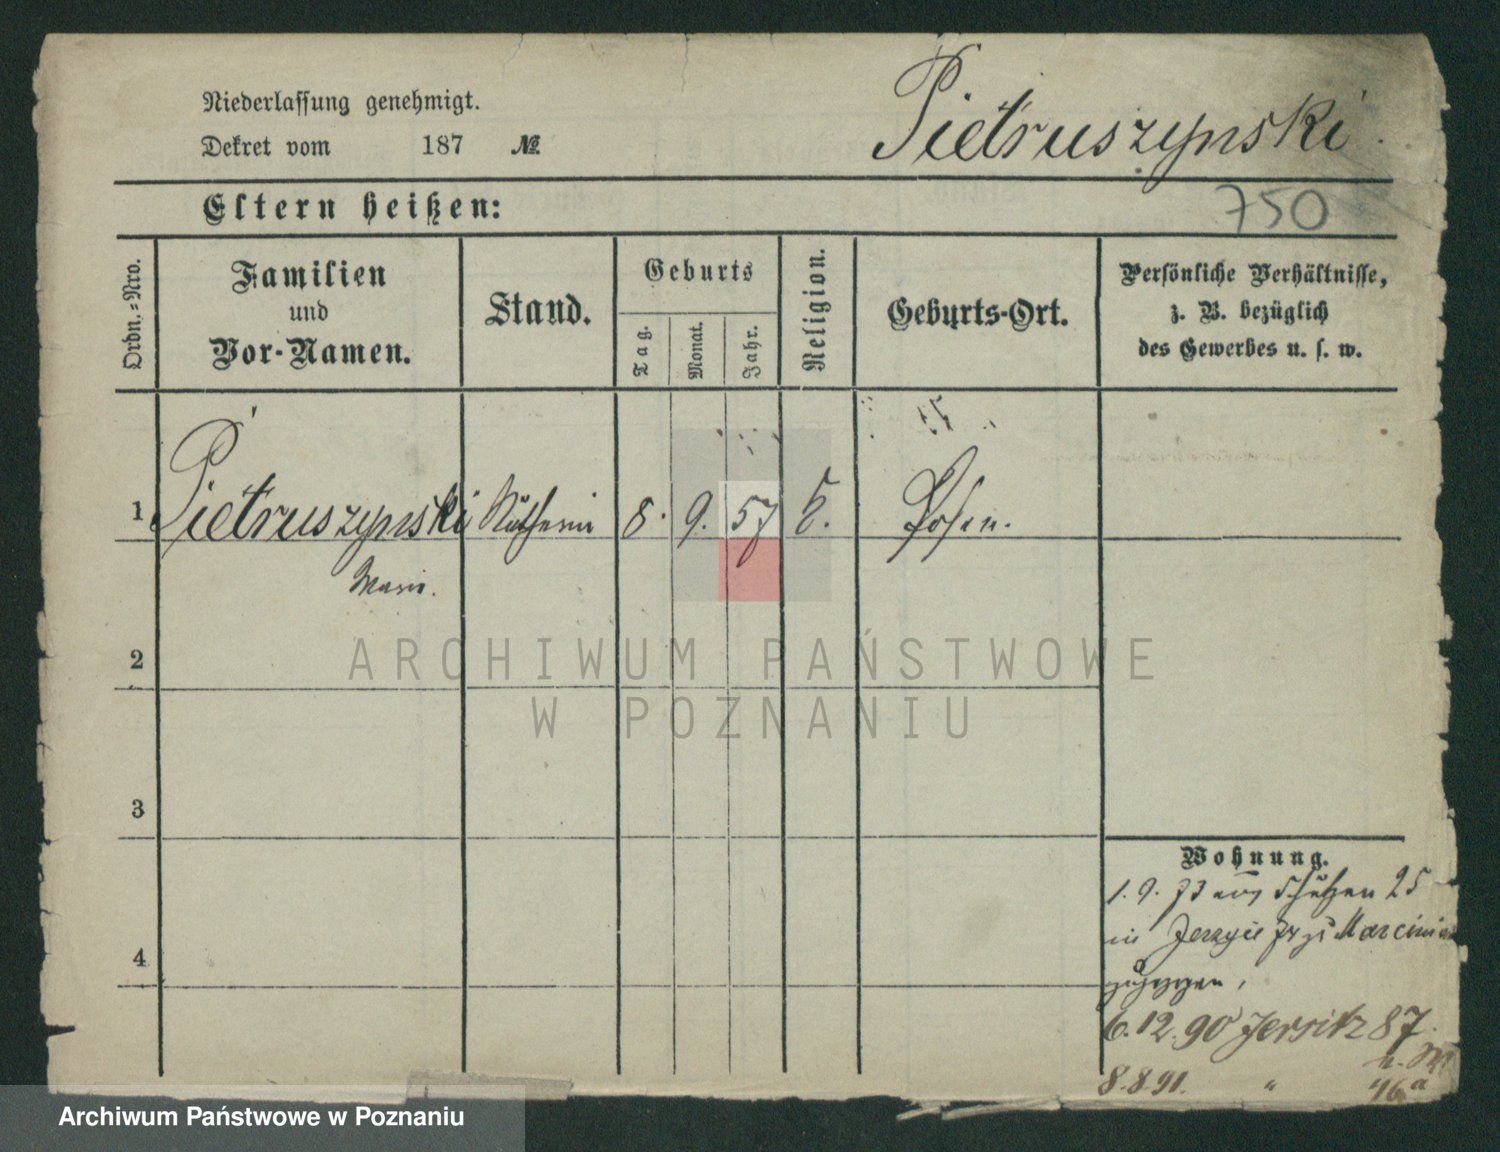 Niederlassung genehmigt.
Pietruszynski
Dekret vom 187 №
Eltern heißen:
750
Ordn.-Nro.
Familien
und
Vor-Namen.
Stand.
Geburts
Tag.
Monat.
Jahr.
Religion.
Geburts-Ort.
Persönliche Verhältnisse,
z. B. bezüglich
des Gewerbes u. s. w.
1 Pietruszynski 8. 9. 57 Posen.
2
3
4
Wohnung.
1. 9. aus Schützen 25
in
6.12.90 Jersitz 87.
8.8.91. " 46a
ARCHIWUM PAŃSTWOWE
W POZNANIU
Archiwum Państwowe w Poznaniu